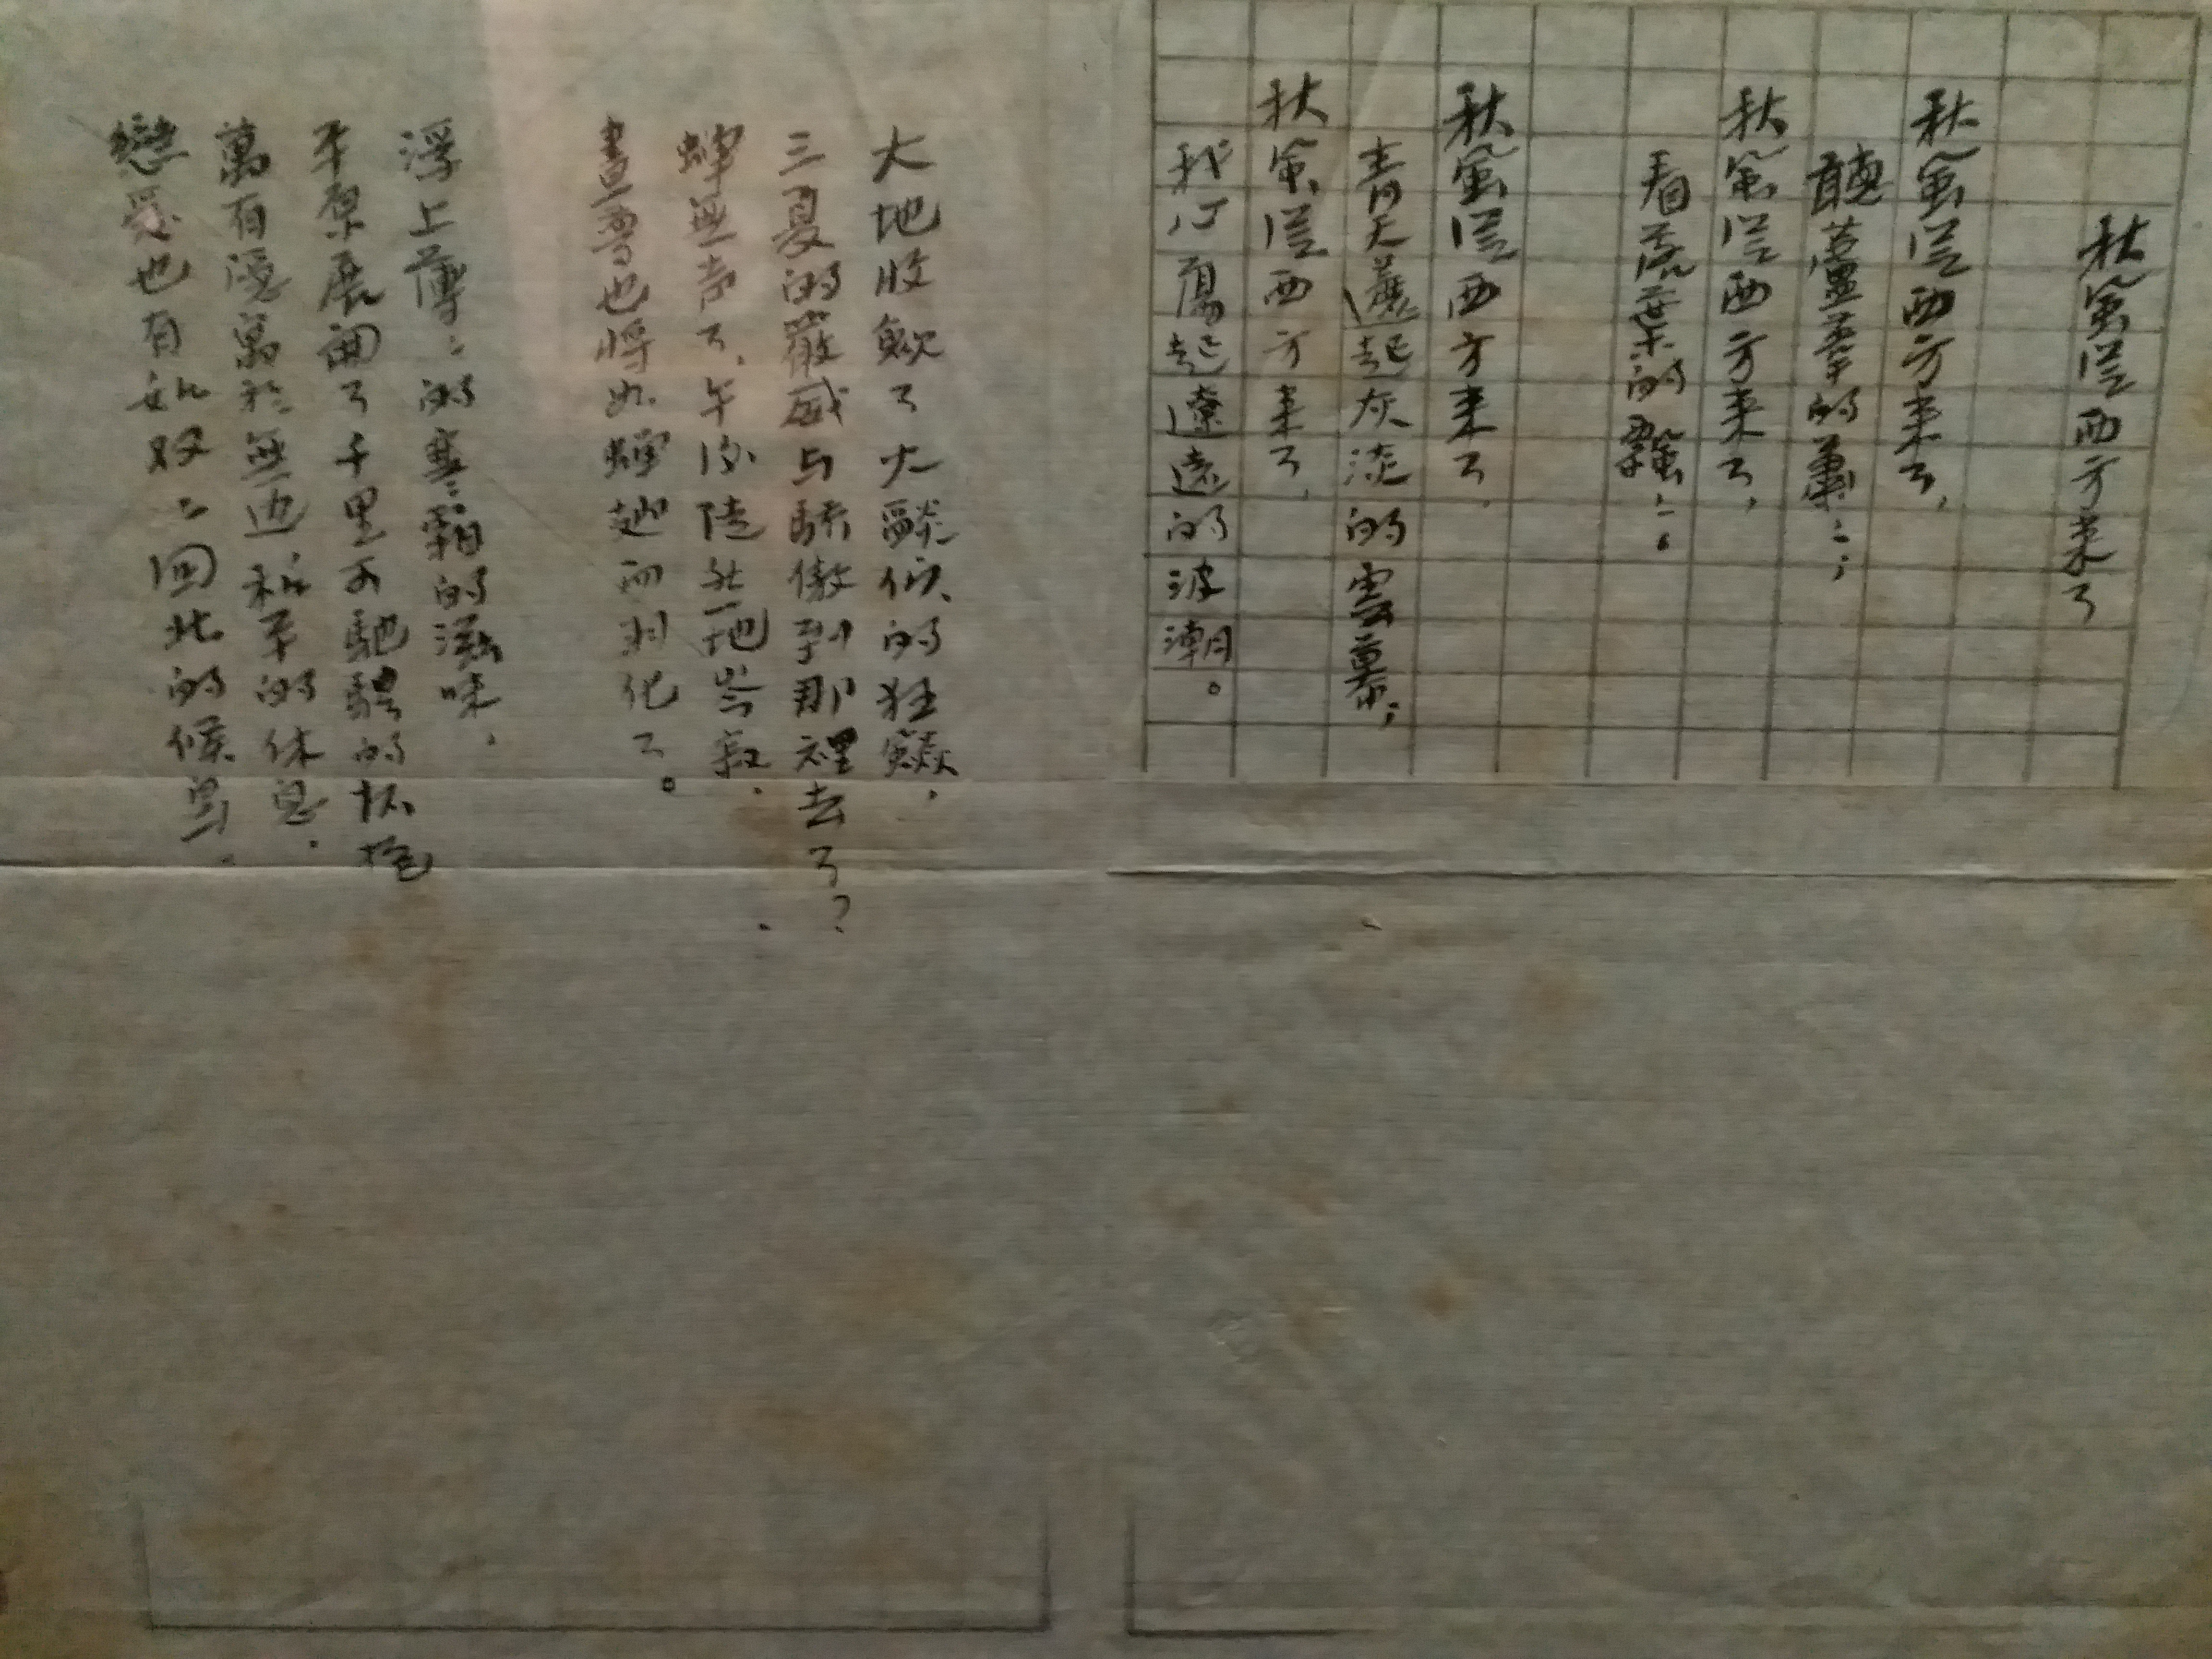 秋風從西方來了
秋風從西方來了，
聽蘆葦的蕭〻；
秋風從西方來了，
看流葉的飄〻。
秋風從西方來了，
青天蕩起灰淡的雲幕；
秋風從西方來了，
我心蕩起遼遠的波潮。
大地收歛了火燄似的狂
三夏的嚴威与驕傲到那裡去了？
蟬無声了，午後陡然一地岑寂．
晝夢也將如蟬翅而羽化了。
浮上薄〻的寒〻霜的滋味，
平原展開了千里可馳騁的怀抱
萬有隱寓於無边和平的休息．
戀愛也有如双〻回北的候鳥．